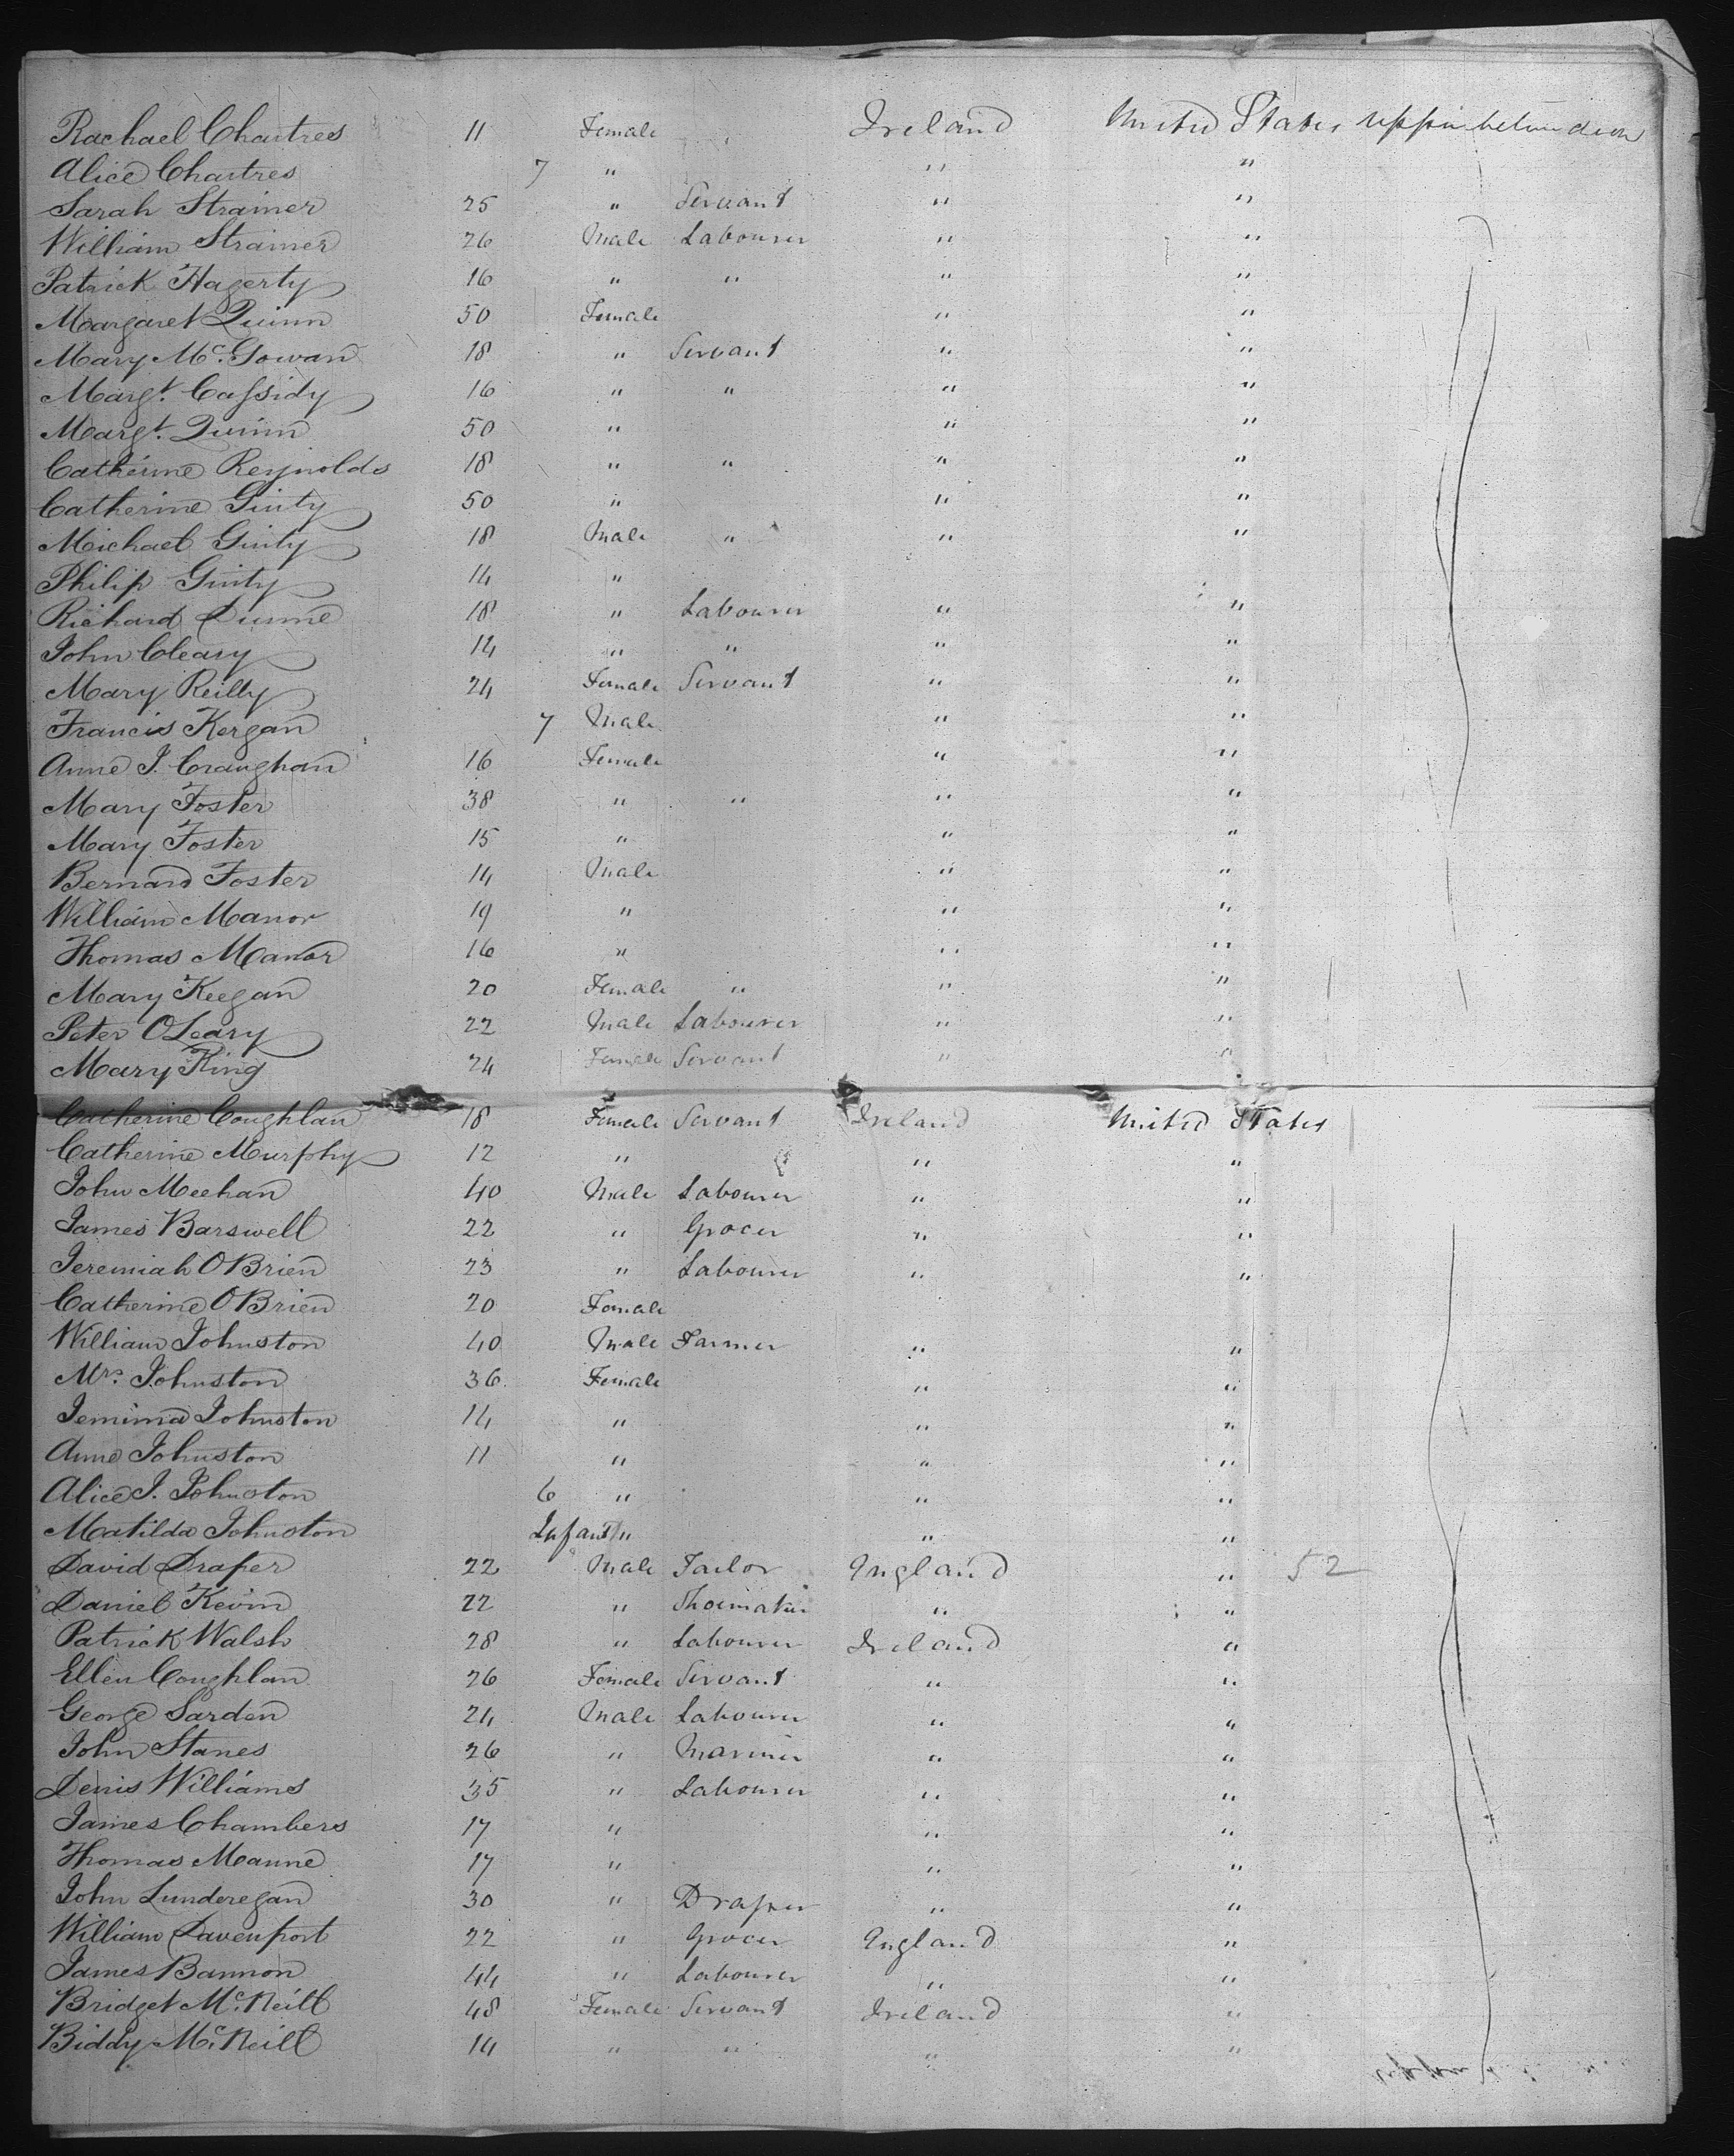 Rachael Chartres 11 Female " Ireland United States upper between deck
Alice Chartres 7 " " "
Sarah Strainer 25 " Servant " "
William Strainer 26 Male Labourer " "
Patrick Hagerty 16 " " " "
Margaret Quinn 50 Female " "
Mary McGowan 18 " Servant " "
Margt. Cassidy 16 " " " "
Margt. Quinn 50 " " "
Catherine Reynolds 18 " " " "
Catherine Ginty 50 " " "
Michael Ginty 18 Male " " "
Philip Ginty 14 "
Richard Dunne 18 " Labourer " "
John Cleary 14 " " " "
Mary Reilly 24 Female Servant " "
Francis Kergan 7 Male " "
Anne J. Craughan 16 Female " "
Mary Foster 38 " " " "
Mary Foster 15 " " "
Bernard Foster 14 Male " "
William Manor 19 " " "
Thomas Manor 16 " " "
Mary Keegan 20 Female " " "
Peter OLeary 22 Male Labourer " "
Mary King 24 Female Servant " "
Catherine Coughlan 18 Female Servant Ireland United States
Catherine Murphy 12 " " "
John Meehan 40 Male Labourer " "
James Barswell 22 " Grocer " "
Jeremiah OBrien 23 " Labourer " "
Catherine OBrien 20 Female
William Johnston 40 Male Farmer " "
Mrs. Johnston 36 Female " "
Jemima Johnston 14 " " "
Anne Johnston 11 " " "
Alice J. Johnston 6 " " "
Matilda Johnston Infant " " "
David Draper 22 Male Tailor England " 52
Daniel Kevin 22 " Shoemaker " "
Patrick Walsh 28 " Labourer Ireland "
Ellen Coughlan 26 Female Servant " "
George Sarden 24 Male Labourer " "
John Stanes 26 " Mariner " "
Denis Williams 35 " Labourer " "
James Chambers 17 " " "
Thomas Manne 17 " " "
John Lunderegan 30 " Draper " "
William Davenport 22 " Grocer England "
James Bannon 44 " Labourer " "
Bridget McNeill 48 Female Servant Ireland "
Biddy McNeill 14 " " " "